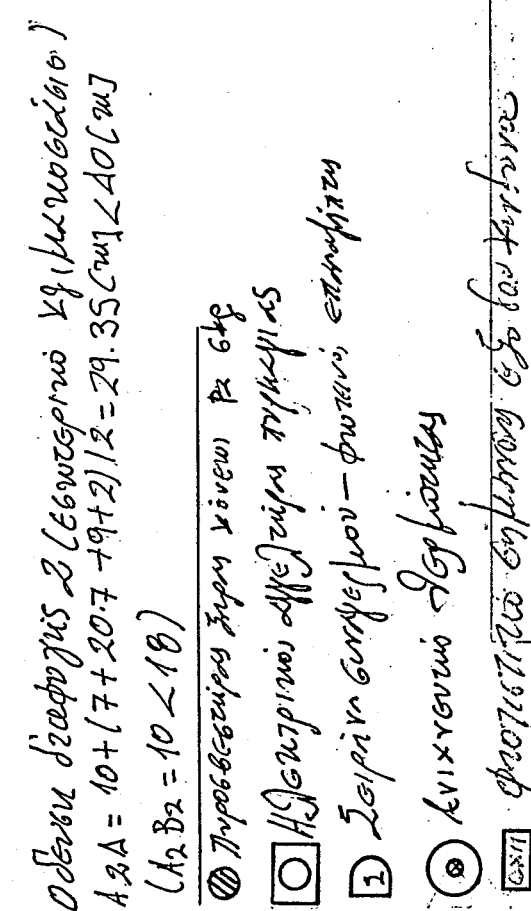 Οδευση διαφυγής 2 (εσωτερικό κλιμακοστάσιο)
A2Δ = 10+(7+20.7+9+2)/2=29.35[m]<40[m]
(A2B2=10<18)
Πυροσβεστήρας ξηρας κόνεως Pa 6kg
Ηλεκτρικός αγγελτήρας πυρκαγιάς
1 Σειρήνα συναγερμού - φωτεινός επαναλήπτης
Ανιχνευτής θερμότητας
ΕΧΙΤ φωτιστικό σήμανσης εξόδου κινδύνου